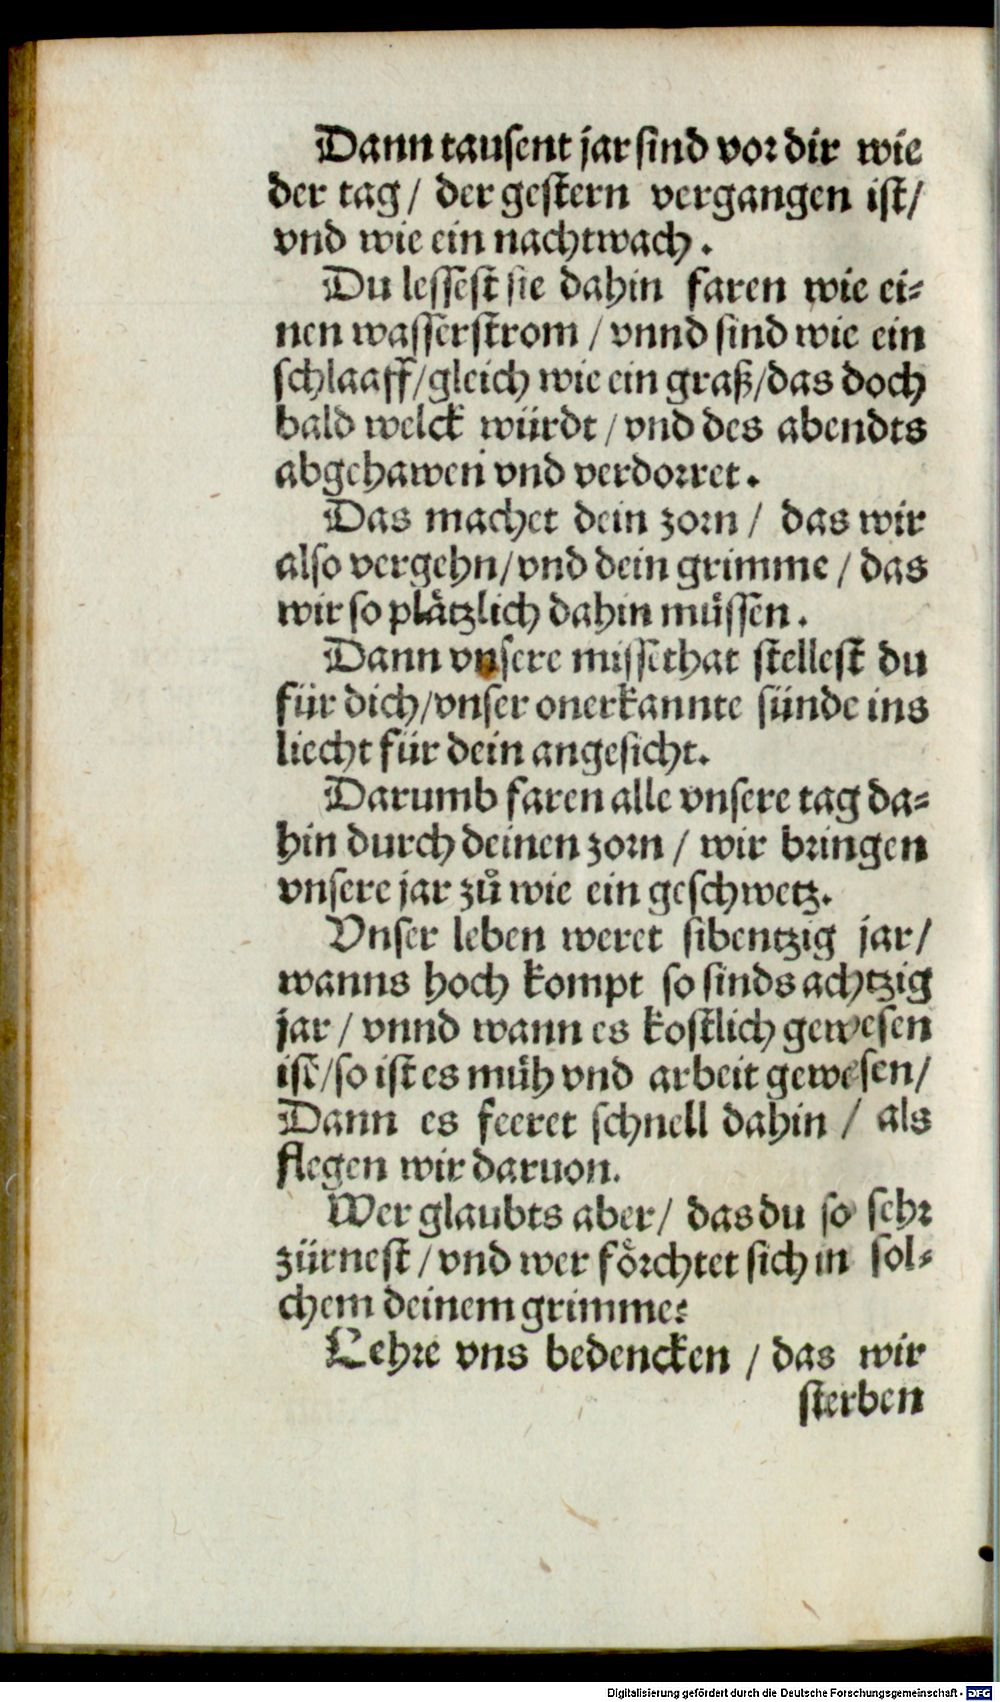 Dann tausent jar sind vor dir wie
der tag / der gestern vergangen ist /
vnd wie ein nachtwach .
Du lessest sie dahin faren wie ei-
nen wasserstrom / vnnd sind wie ein
schlaaff / gleich wie ein graß / das doch
bald welck würdt / vnd des abendts
abgehawen vnd verdorret .
Das machet dein zorn / das wir
also vergehn / vnd dein grimme / das
wir so plåtzlich dahin müssen .
Dann vnsere missethat stellest du
für dich / vnser onerkannte sünde ins
liecht für dein angesicht.
Darumb faren alle vnsere tag da-
hin durch deinen zorn / wir bringen
vnsere jar zů wie ein geschwetz.
Vnser leben weret sibentzig jar /
wanns hoch kompt so sinds achtzig
jar / vnnd wann es kostlich gewesen
ist / so ist es müh vnd arbeit gewesen /
Dann es feeret schnell dahin / als
flegen wir daruon.
Wer glaubts aber / das du so sehr
zürnest / vnd wer förchtet sich in sol-
chem deinem grimme?
Lehre vns bedencken / das wir
sterben
Digitalisierung gefördert durch die Deutsche Forschungsgemeinschaft - DFG